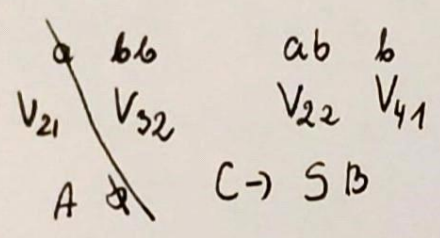 a bb ab b
V21 V32 V22 V41
A C-> S B